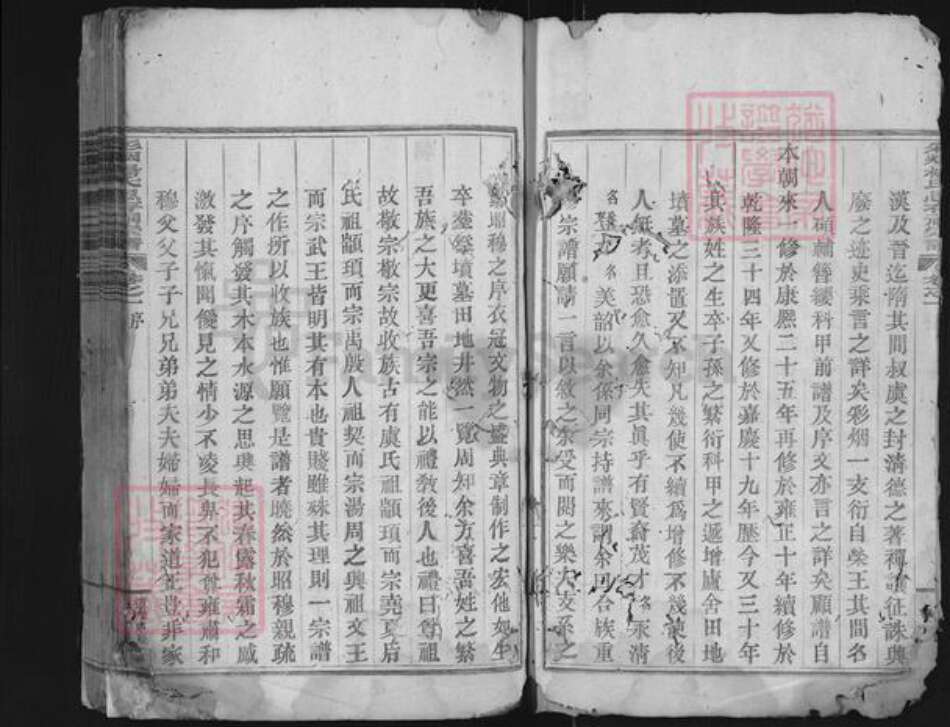 漢及晉迄隋其間叔虞之封清德之著禪讓征誅典
廢之迹史乘言之詳矣彩烟一支衍自榮王其間名
人碩輔簪纓科甲前譜及序文亦言之詳矣顧譜自
本朝來一修於康熙二十五年再修於雍正十年續修於
乾隆三十四年又修於嘉慶十九年歷今又三十年
其族姓之生卒子孫之繁衍科甲之遞增廬舍田地
墳墓之添置又不知凡幾使不續爲增修不幾前後
人無考且恐愈久愈失其眞乎有賢裔茂才名汞清
名登 名美韶以余係同宗持譜來謂余曰合族重
宗譜願請一言以敘之余受而閱之樂大支系之
昭穆之序衣冠文物之盛典章制作之宏他如生
卒塋墳墓田地井然一覽周知余方喜吾姓之繁
吾族之大更喜吾宗之能以禮敎後人也禮曰尊祖
故敬宗敬宗故收族古有虞氏祖顓頊而宗堯夏后
氏祖顓頊而宗禹殷人祖契而宗湯周之興祖文王
而宗武王皆明其有本也貴賤雖殊其理則一宗譜
之作所以收族也惟願覽是譜者曉然於昭穆親疏
之序觸發其木本水源之思興起其春露秋霜之感
激發其愾聞僾見之情少不凌長卑不犯尊雍肅和
穆父父子子兄兄弟弟夫夫婦婦而家道正豈非家
卷之一 序